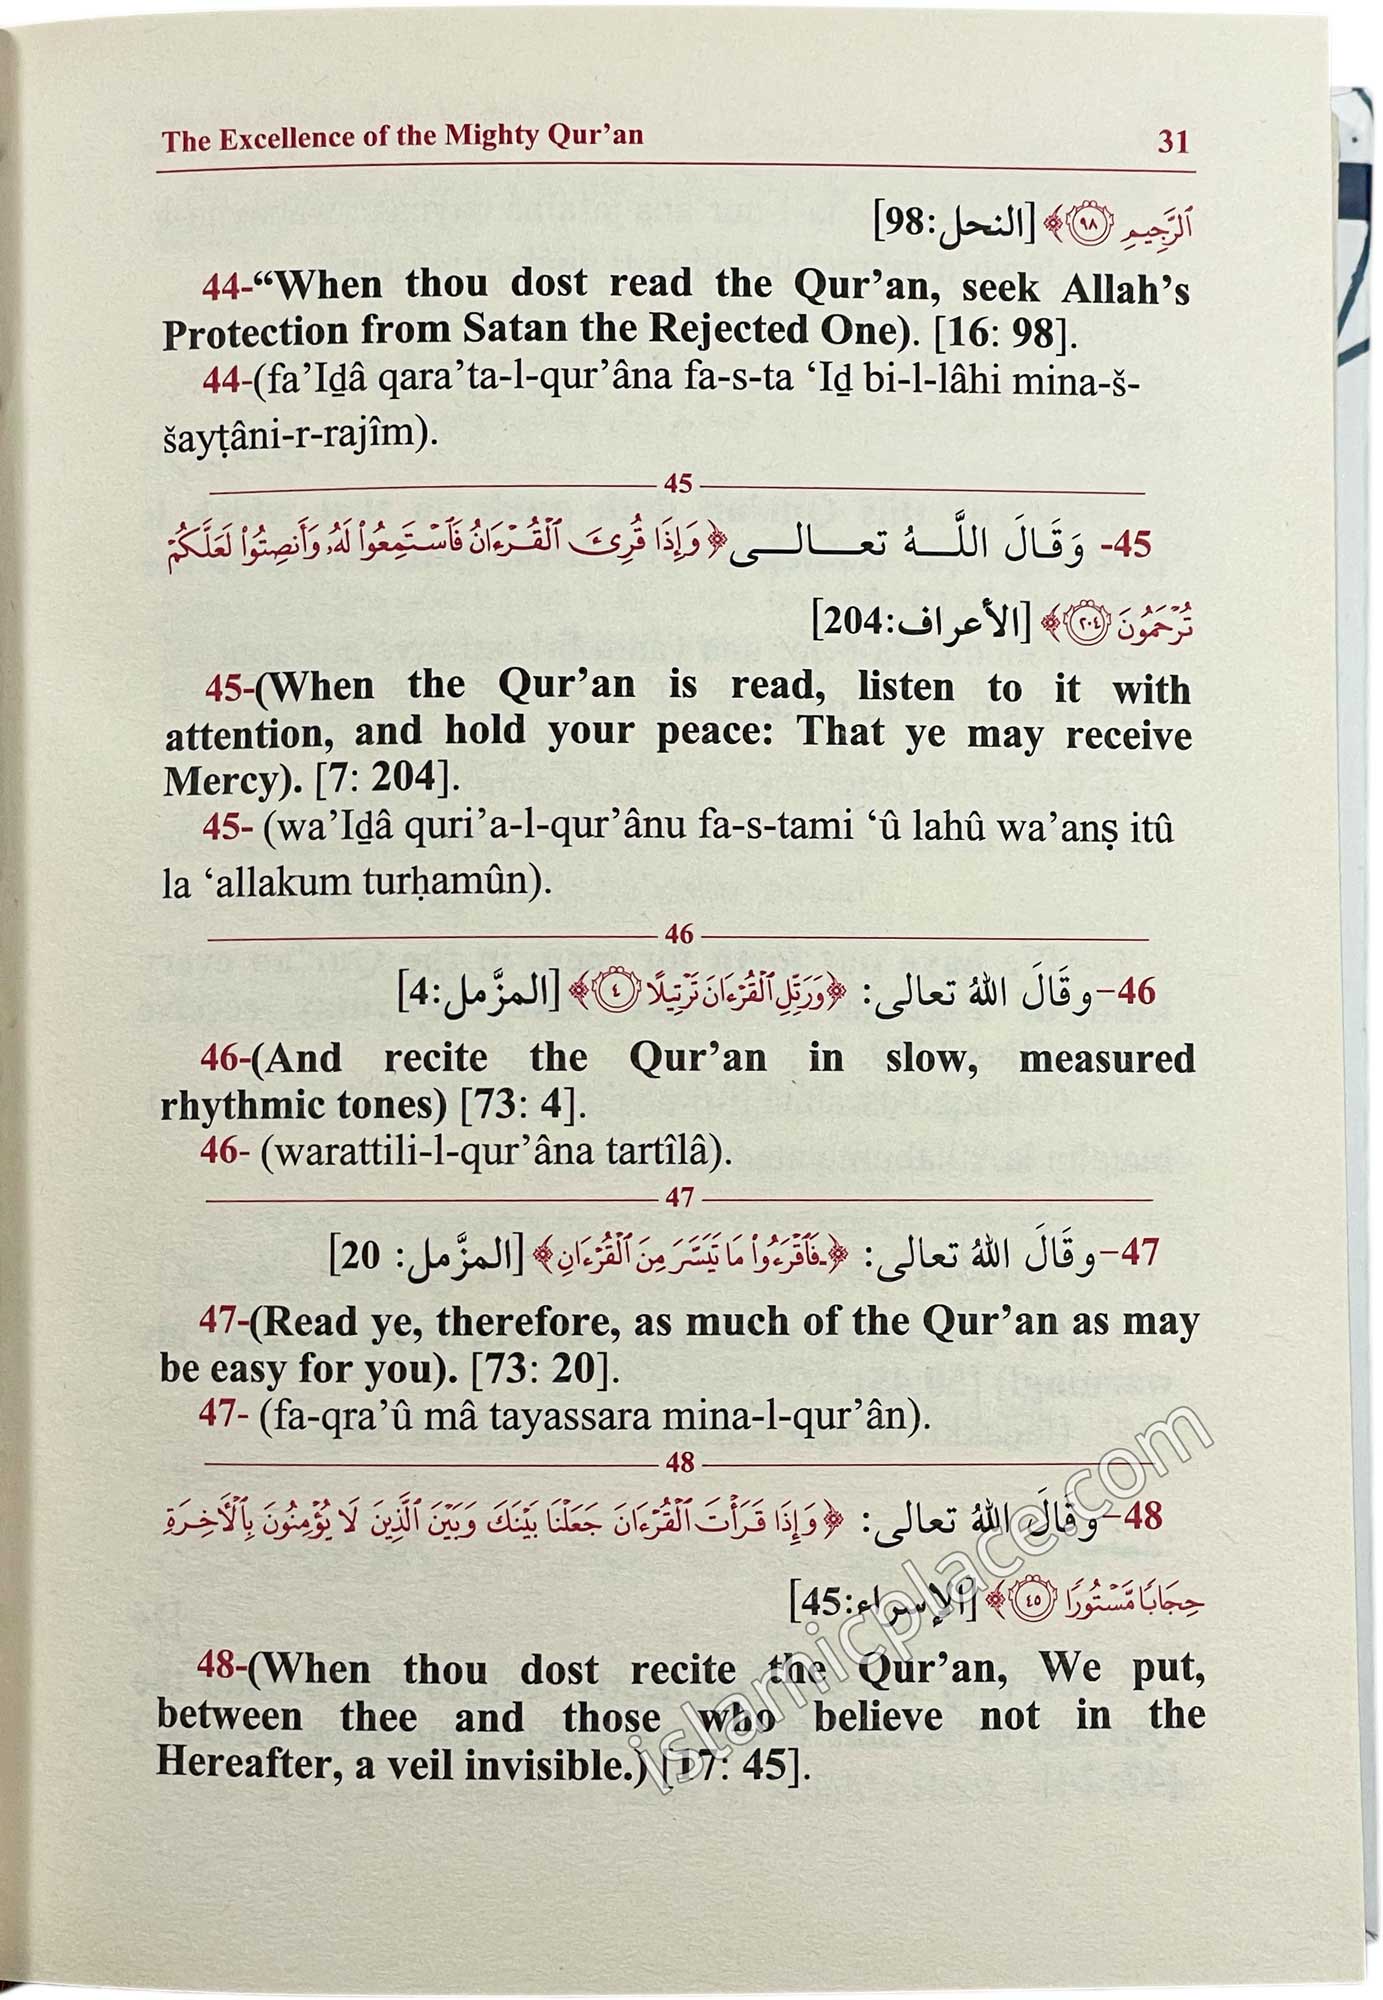 The Excellence of the Mighty Qur’an 31
ٱلرَّجِيمِ ﴿٩٨﴾ [النحل:98]
44-“When thou dost read the Qur’an, seek Allah’s
Protection from Satan the Rejected One). [16: 98].
44-(fa’Iḏâ qara’ta-l-qur’âna fa-s-ta ‘Iḏ bi-l-lâhi mina-š-
šayṭâni-r-rajîm).
45
45- وَقَالَ اللَّهُ تعالى ﴿وَإِذَا قُرِئَ ٱلْقُرْءَانُ فَٱسْتَمِعُوا۟ لَهُۥ وَأَنصِتُوا۟ لَعَلَّكُمْ
تُرْحَمُونَ ﴿٢٠٤﴾ [الأعراف:204]
45-(When the Qur’an is read, listen to it with
attention, and hold your peace: That ye may receive
Mercy). [7: 204].
45- (wa’Iḏâ quri’a-l-qur’ânu fa-s-tami ‘û lahû wa’anṣ itû
la ‘allakum turḥamûn).
46
46-وقَالَ اللهُ تعالى: ﴿وَرَتِّلِ ٱلْقُرْءَانَ تَرْتِيلًا ﴿٤﴾ [المزَّمل:4]
46-(And recite the Qur’an in slow, measured
rhythmic tones) [73: 4].
46- (warattili-l-qur’âna tartîlâ).
47
47-وقَالَ اللهُ تعالى: ﴿فَٱقْرَءُوا۟ مَا تَيَسَّرَ مِنَ ٱلْقُرْءَانِ﴾ [المزَّمل: 20]
47-(Read ye, therefore, as much of the Qur’an as may
be easy for you). [73: 20].
47- (fa-qra’û mâ tayassara mina-l-qur’ân).
48
48-وقَالَ اللهُ تعالى: ﴿وَإِذَا قَرَأْتَ ٱلْقُرْءَانَ جَعَلْنَا بَيْنَكَ وَبَيْنَ ٱلَّذِينَ لَا يُؤْمِنُونَ بِٱلْءَاخِرَةِ
حِجَابًا مَّسْتُورًا ﴿٤٥﴾ [الإسراء:45]
48-(When thou dost recite the Qur’an, We put,
between thee and those who believe not in the
Hereafter, a veil invisible.) [17: 45].
islamicplace.com